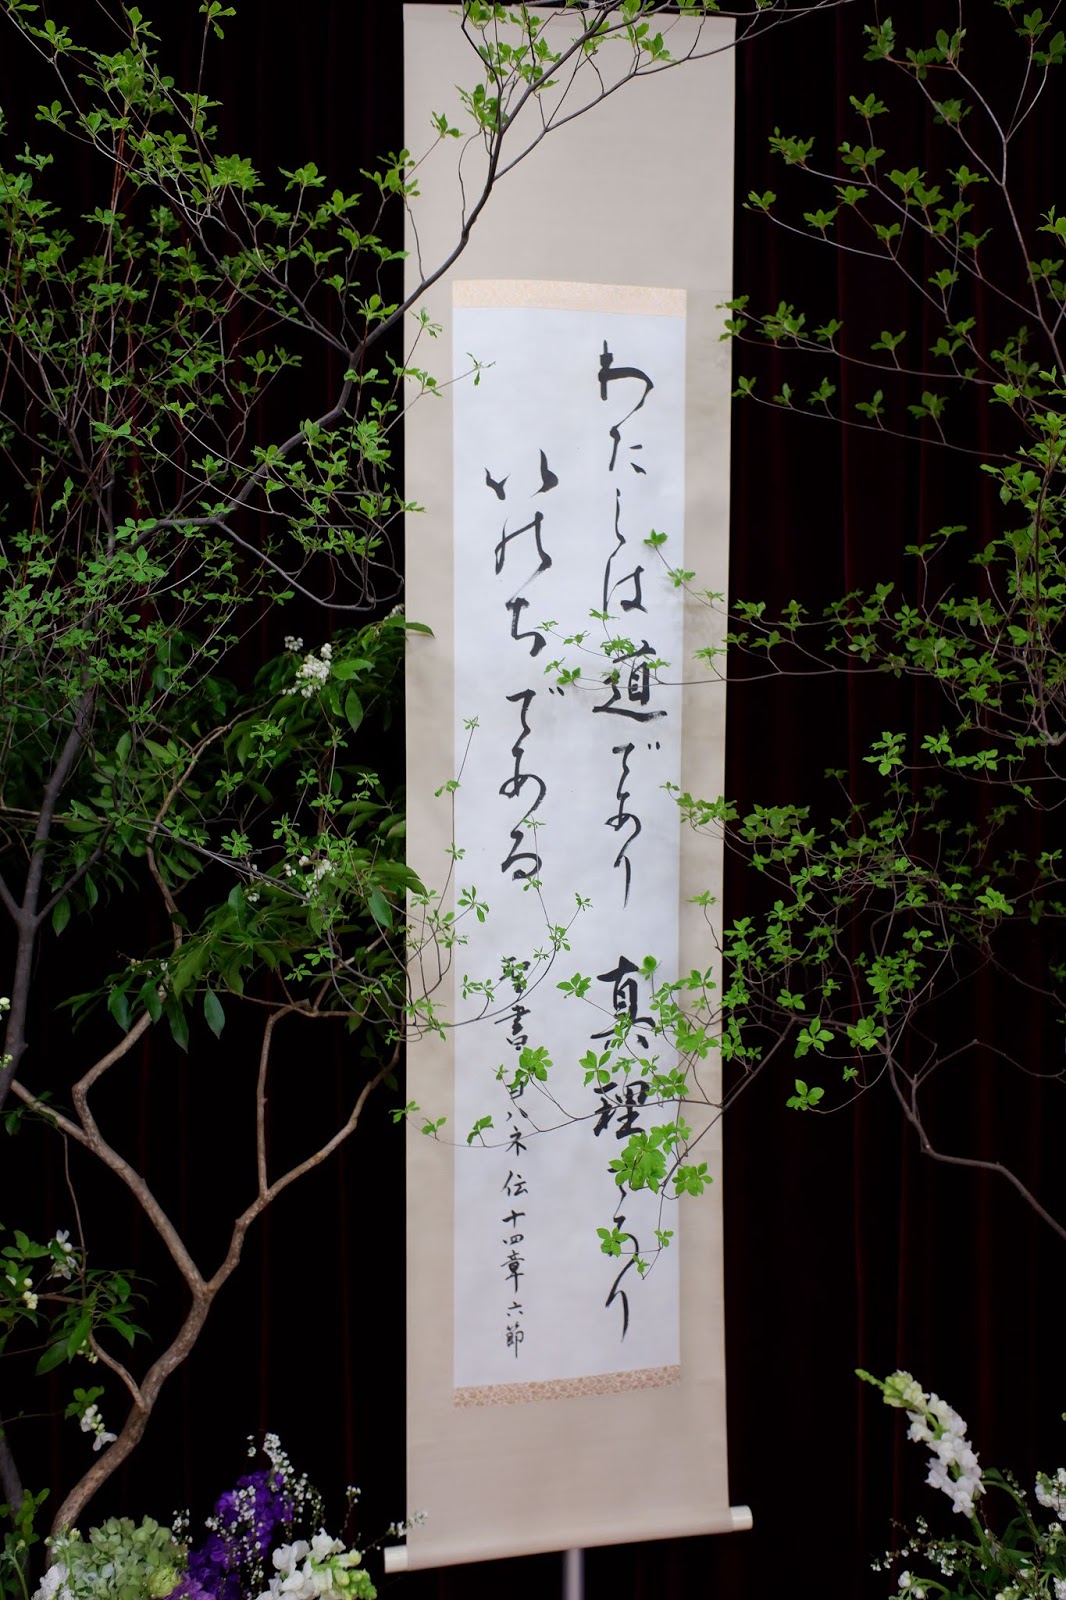 わたしは道であり 真理であり
いのちである
聖書 ヨハネ伝十四章六節